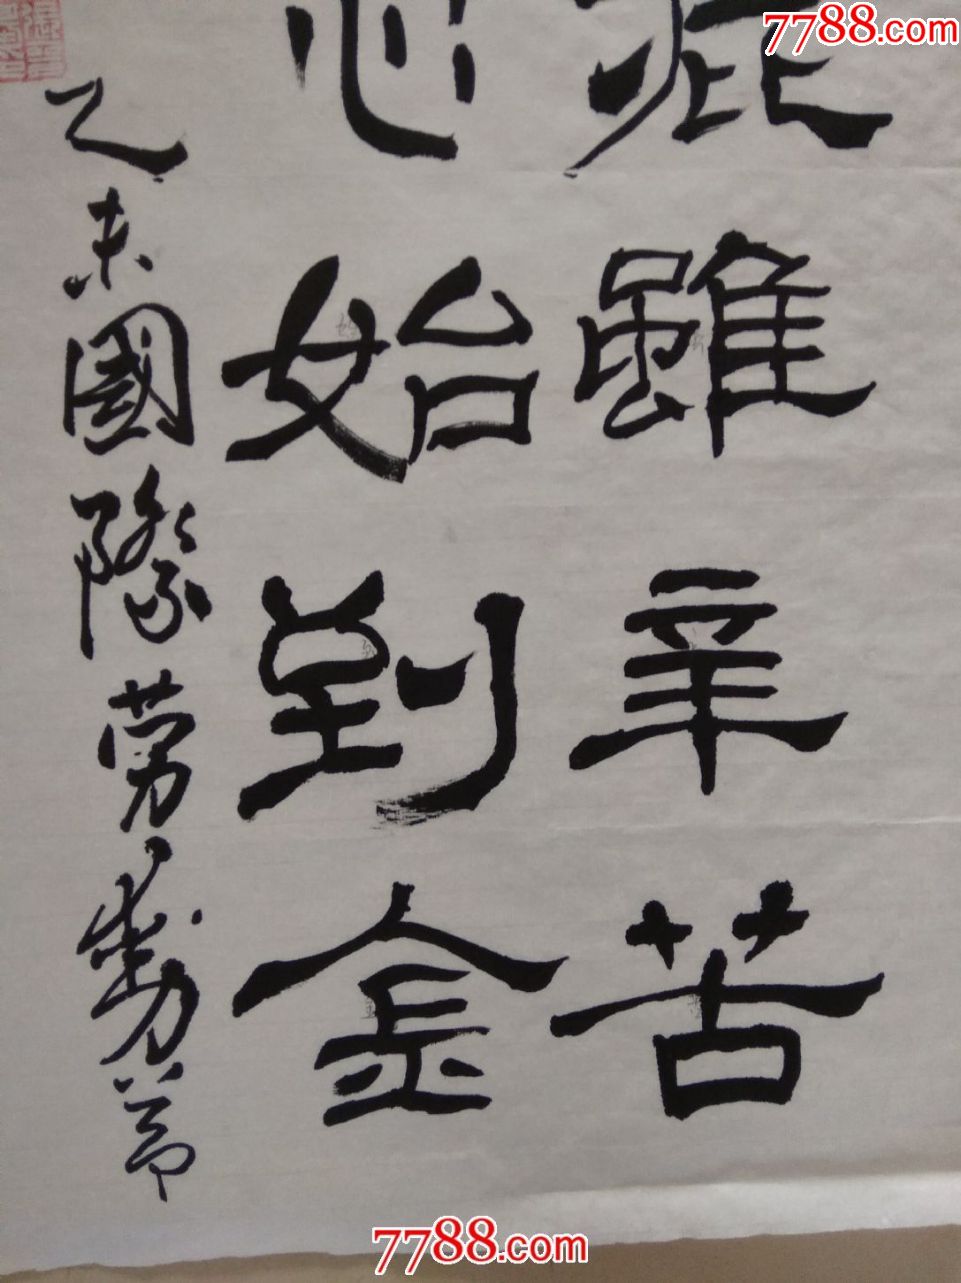 7788.com
雖辛苦
始到金
乙未國際劳動節
7788.com